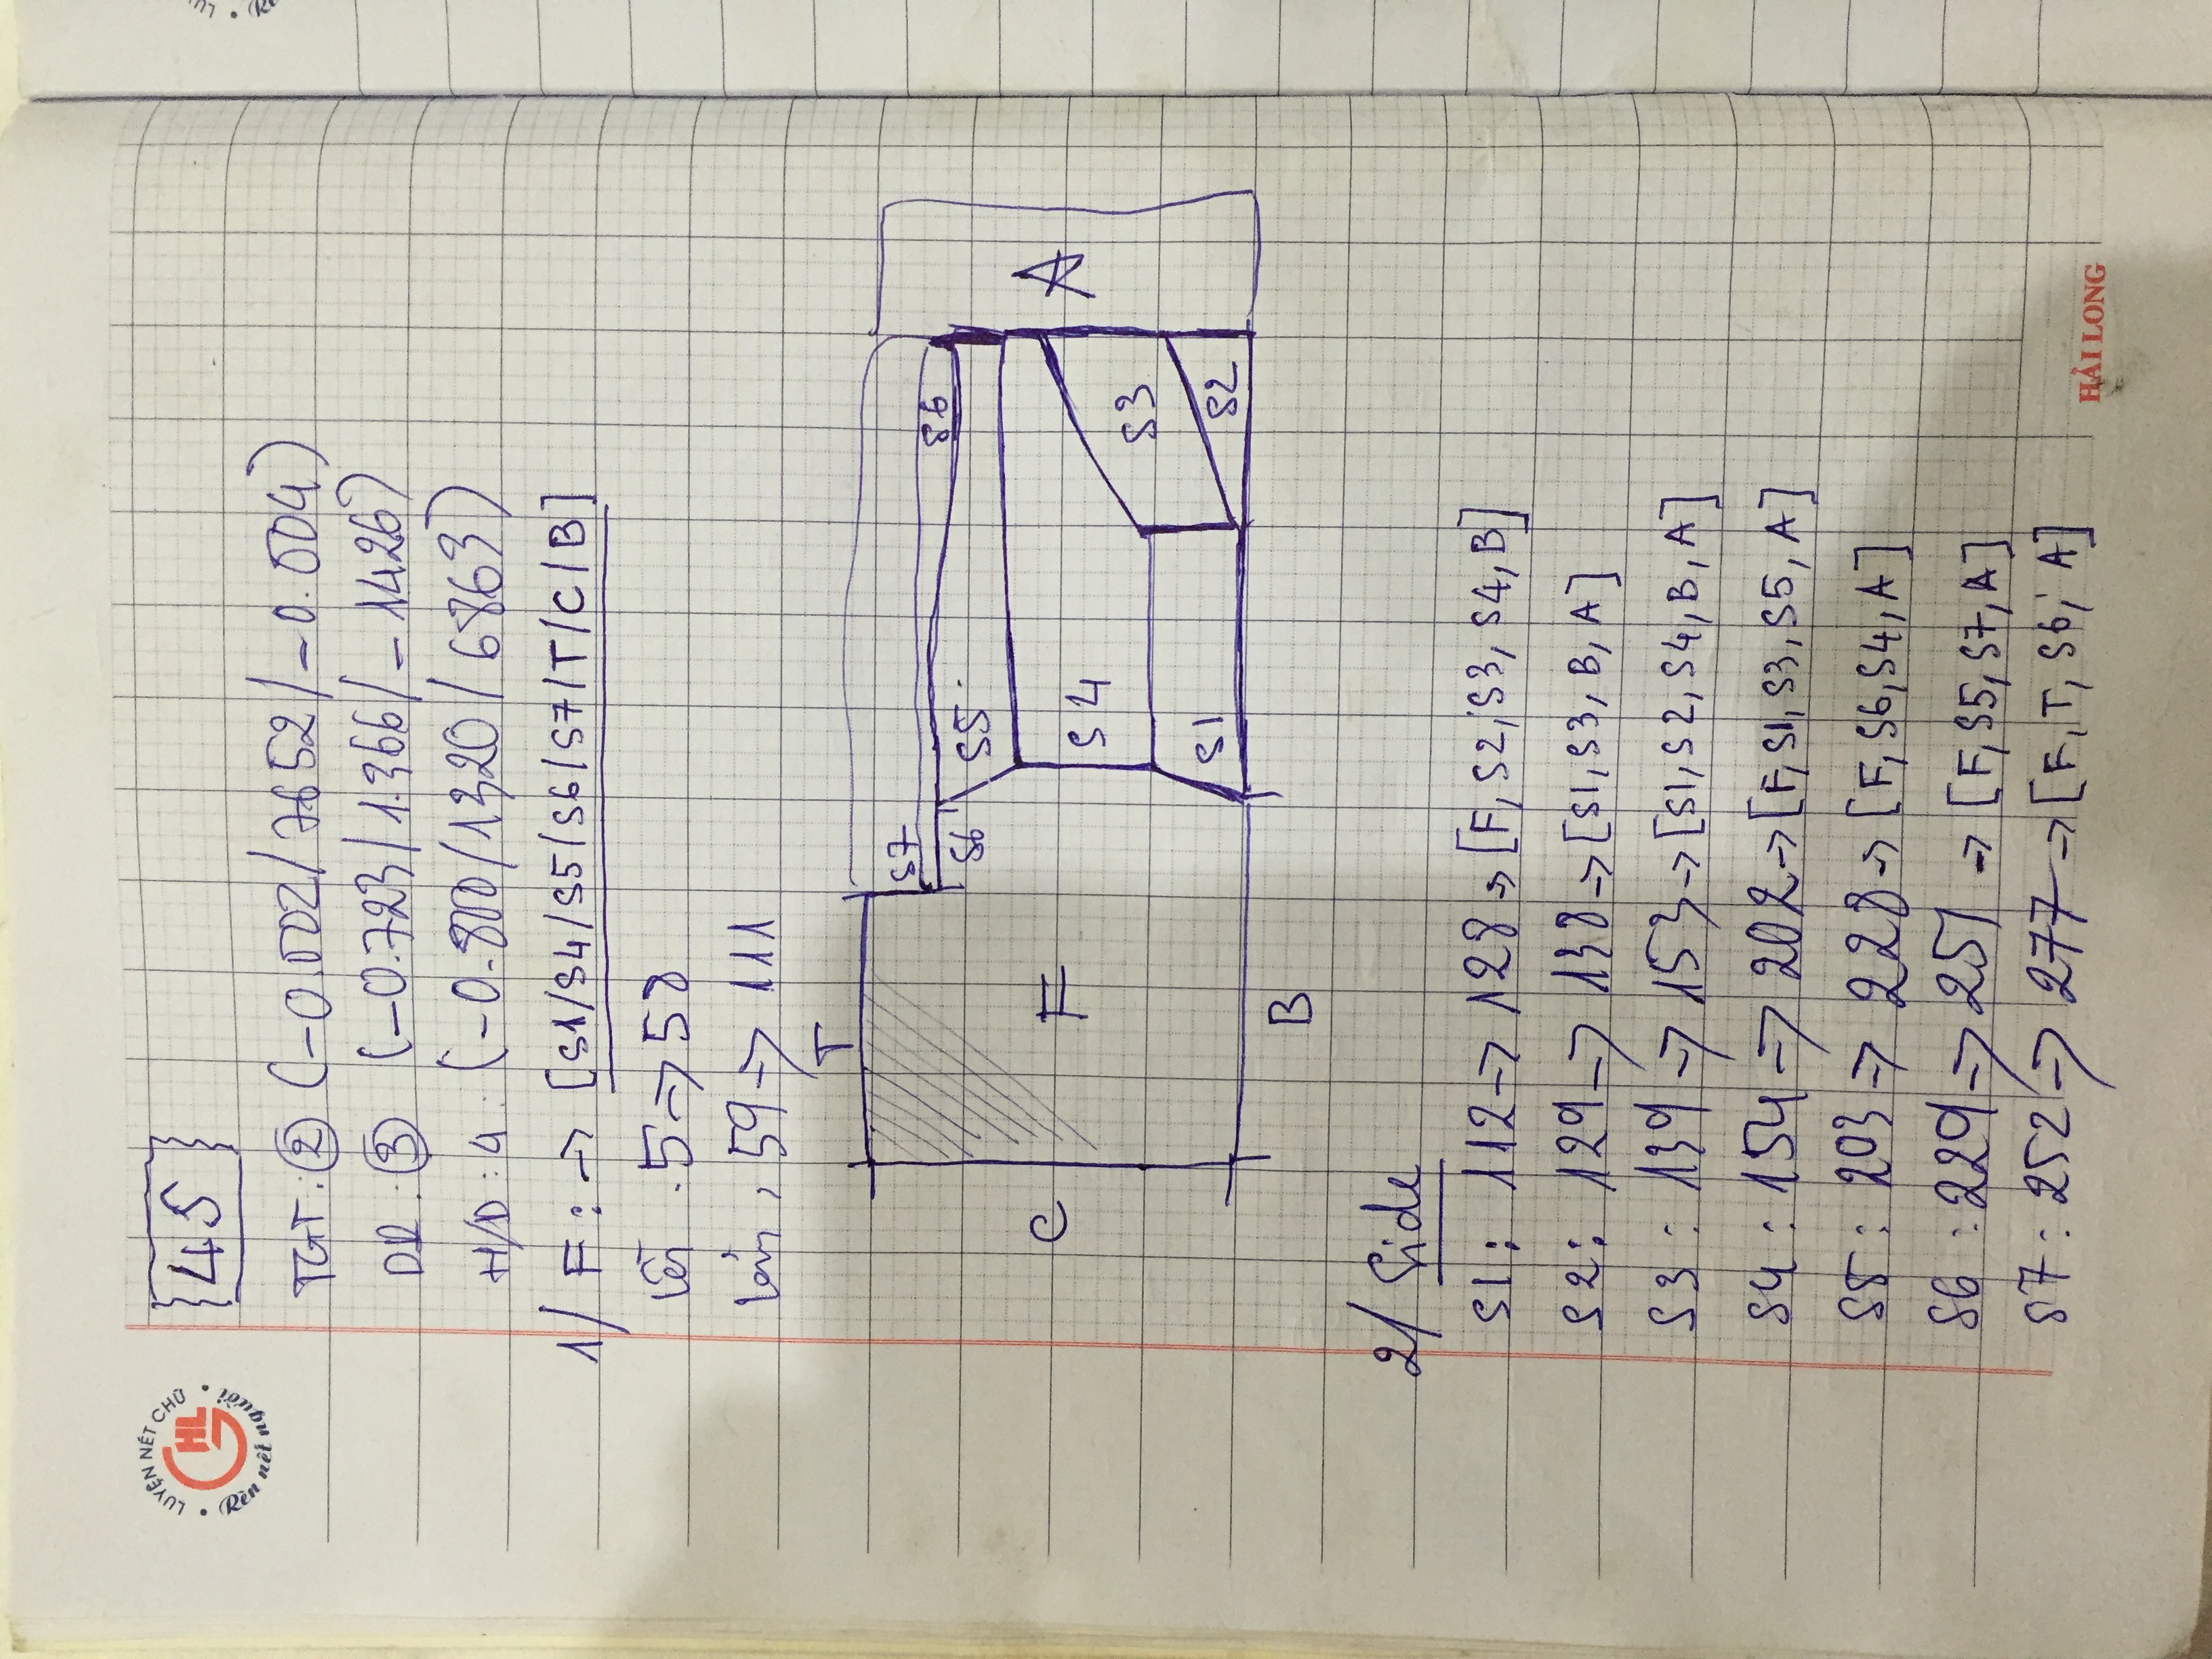 LUYỆN NÉT CHỮ
HL
Rèn nết người
45
TGT: ② (-0.002/7652/-0.004)
DR: ③ (-0.723/1.366/-1426)
H/D: 4: (-0.800/1320/6863)
1/ F: → [S1/S4/S5/S6/S7/T/C/B]
5 => 58
59 => 111
T
S7
S6
S6 S5
C F A
S4
S3
S1
S2
B
2/ Side
S1: 112 -> 128 -> [F, S2, S3, S4, B]
S2: 129 -> 138 -> [S1, S3, B, A]
S3: 139 -> 153 -> [S1, S2, S4, B, A]
S4: 154 -> 202 -> [F, S1, S3, S5, A]
S5: 203 -> 228 -> [F, S6, S4, A]
S6: 229 -> 251 -> [F, S5, S7, A]
S7: 252 -> 277 -> [F, T, S6, A]
HẢI LONG